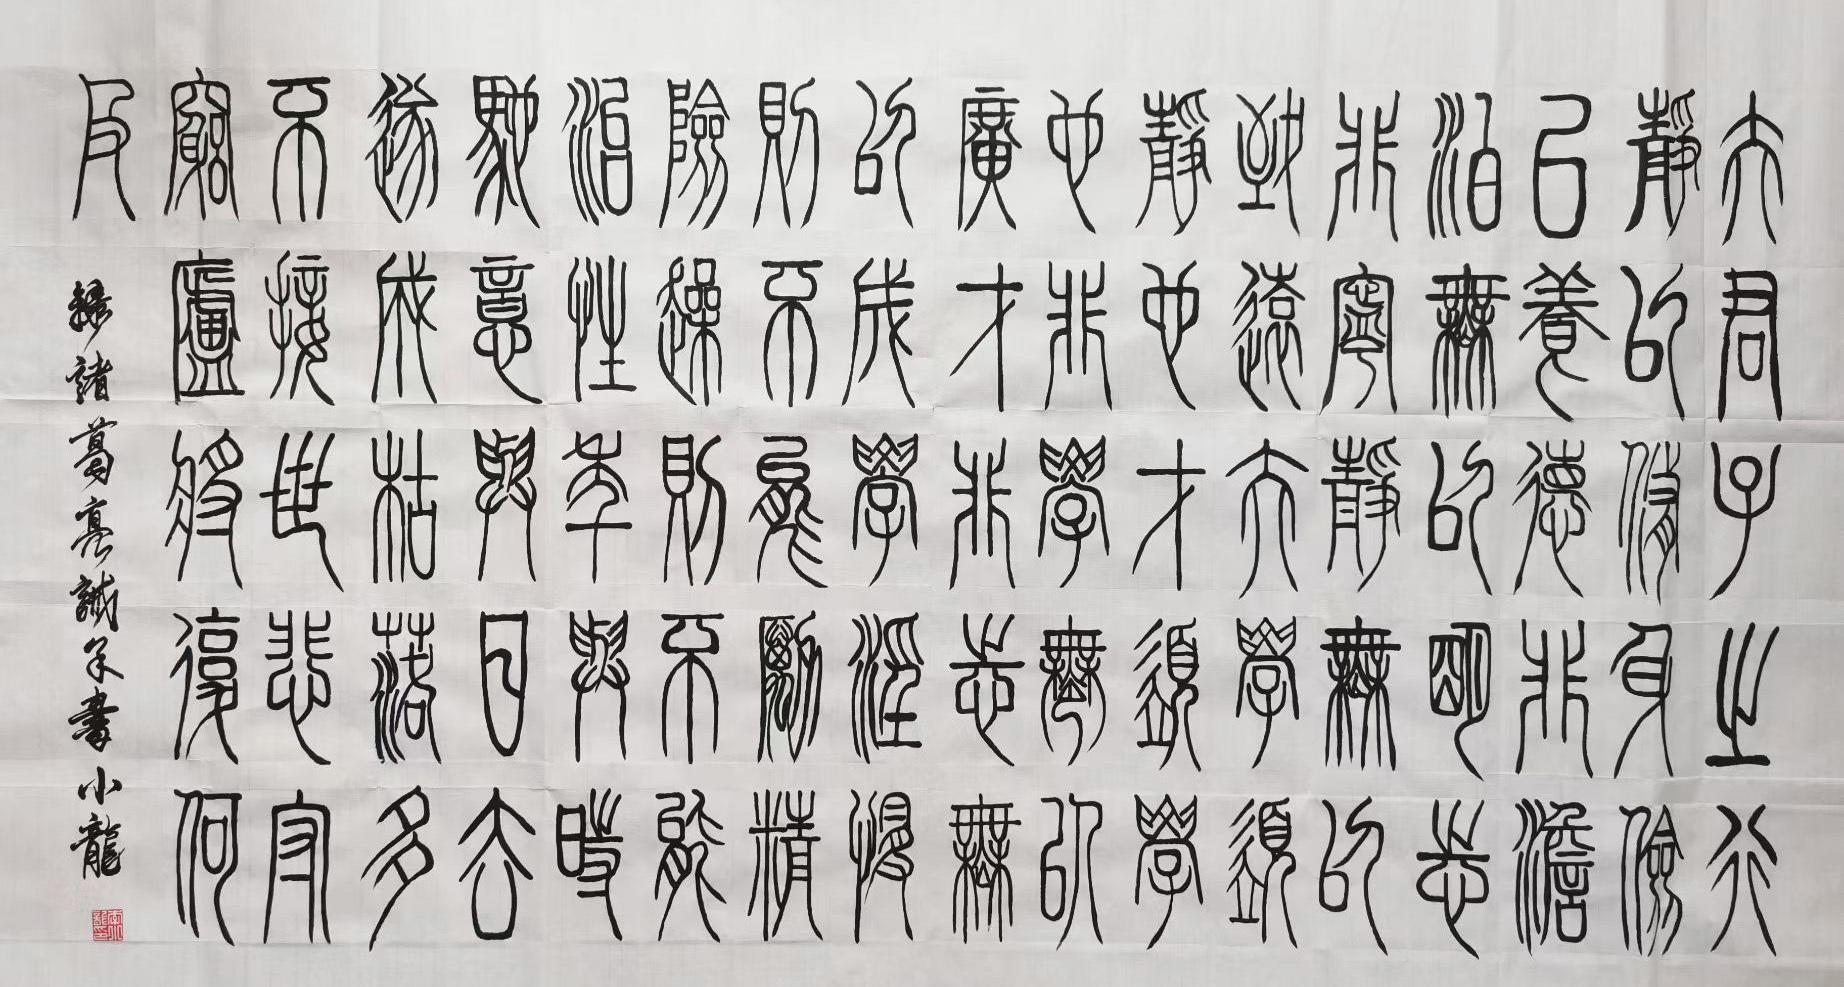 夫君子之行
靜以修身儉
以養德非澹
泊無以明志
非寧靜無以
致遠夫學須
靜也才須學
也非學無以
廣才非志無
以成學淫慢
則不能勵精
險躁則不能
治性年與時
馳意與日去
遂成枯落多
不接世悲守
窮廬將復何
及
錄諸葛亮誡子書小龍